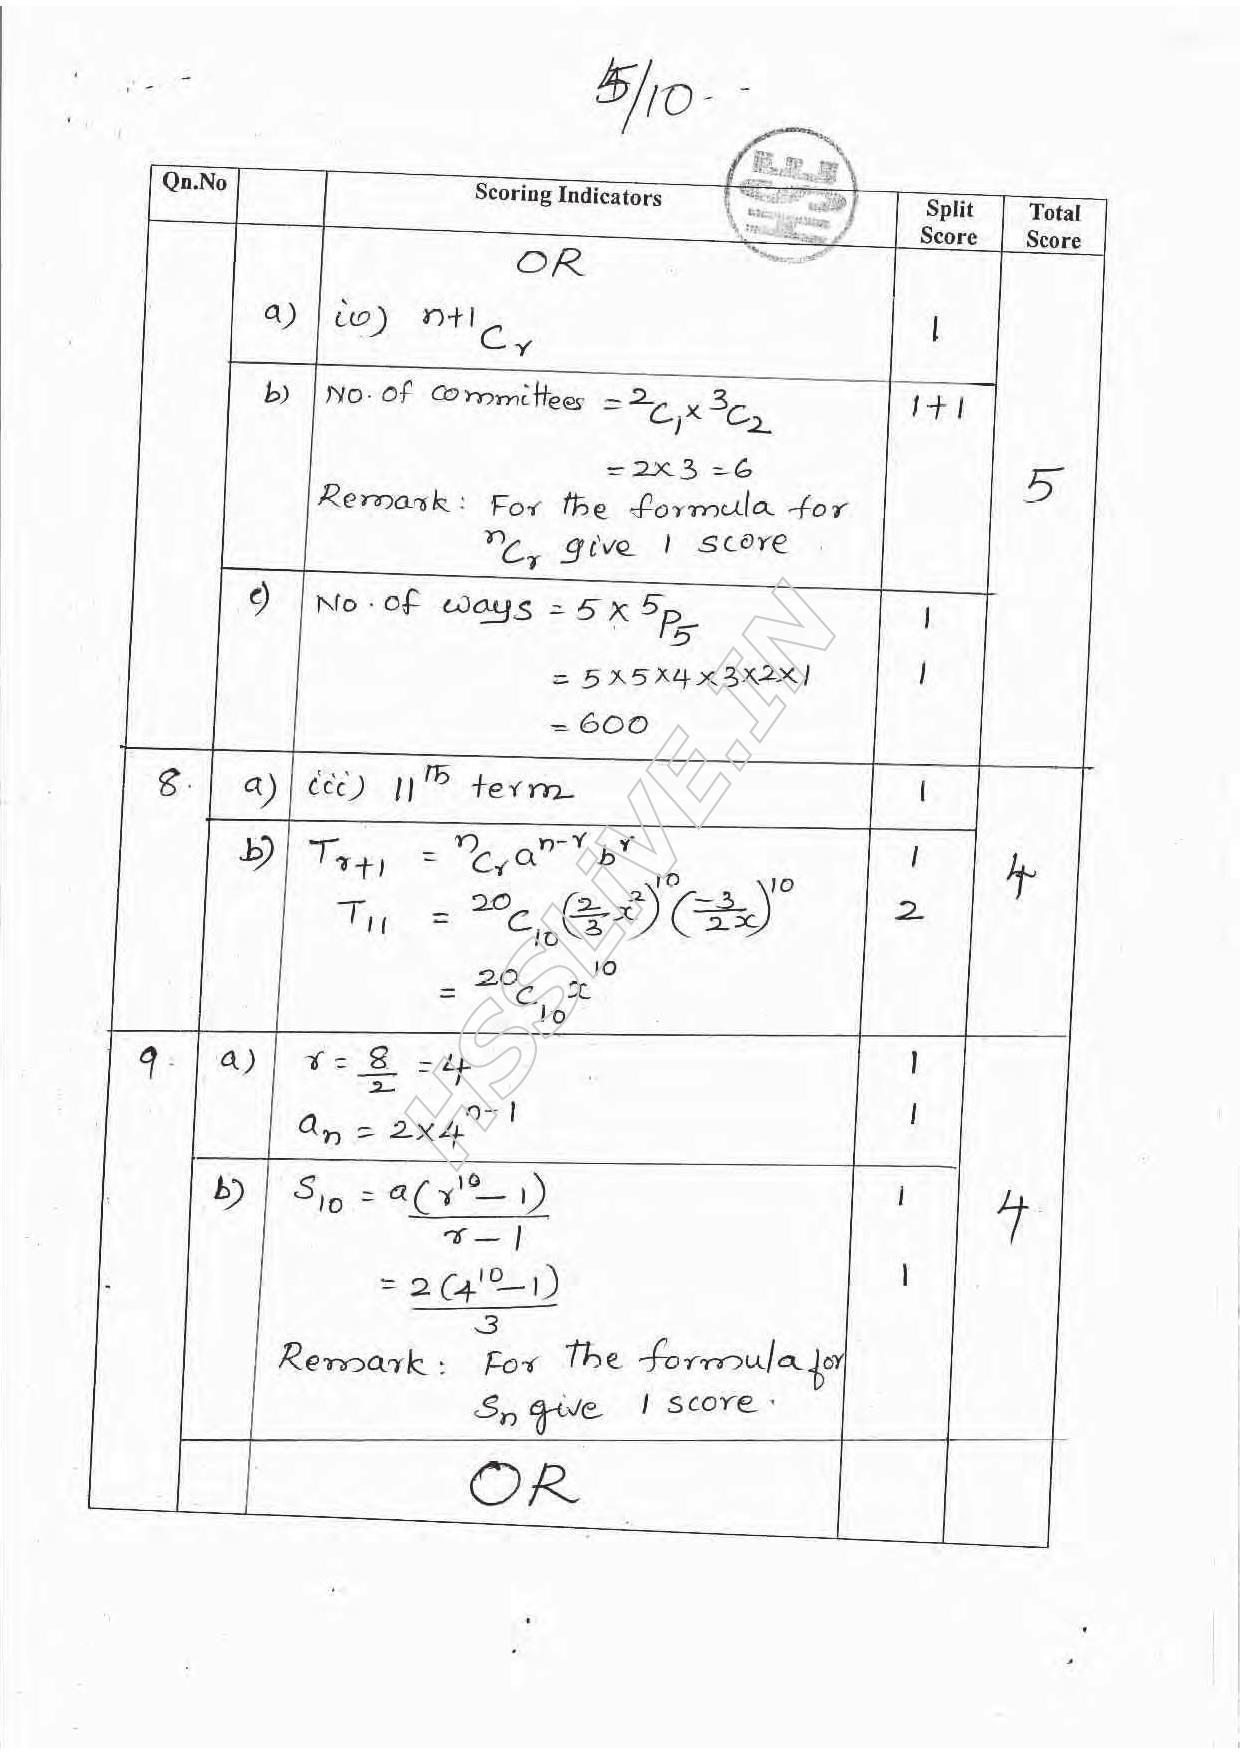 5/10
Qn.No Scoring Indicators Split Score Total Score
HSE
OR
a) iv) n+1Cr 1
b) No. of committees = 2C1 x 3C2 1+1
= 2x3 = 6 5
Remark: For the formula for
nCr give 1 score
c) No. of ways = 5 x 5P5 1
= 5x5x4x3x2x1 1
= 600
8. a) iii) 11th term 1
b) Tr+1 = nCr a^n-r b^r 1 4
T11 = 20C10 (2/3 x^2)^10 (-3/2x)^10 2
= 20C10 x^10
9. a) r = 8/2 = 4 1
an = 2x4^n-1 1
b) S10 = a(r^10 - 1)/r - 1 1 4
= 2(4^10 - 1)/3 1
Remark: For the formula for
Sn give 1 score.
OR
HSSLiVE.IN